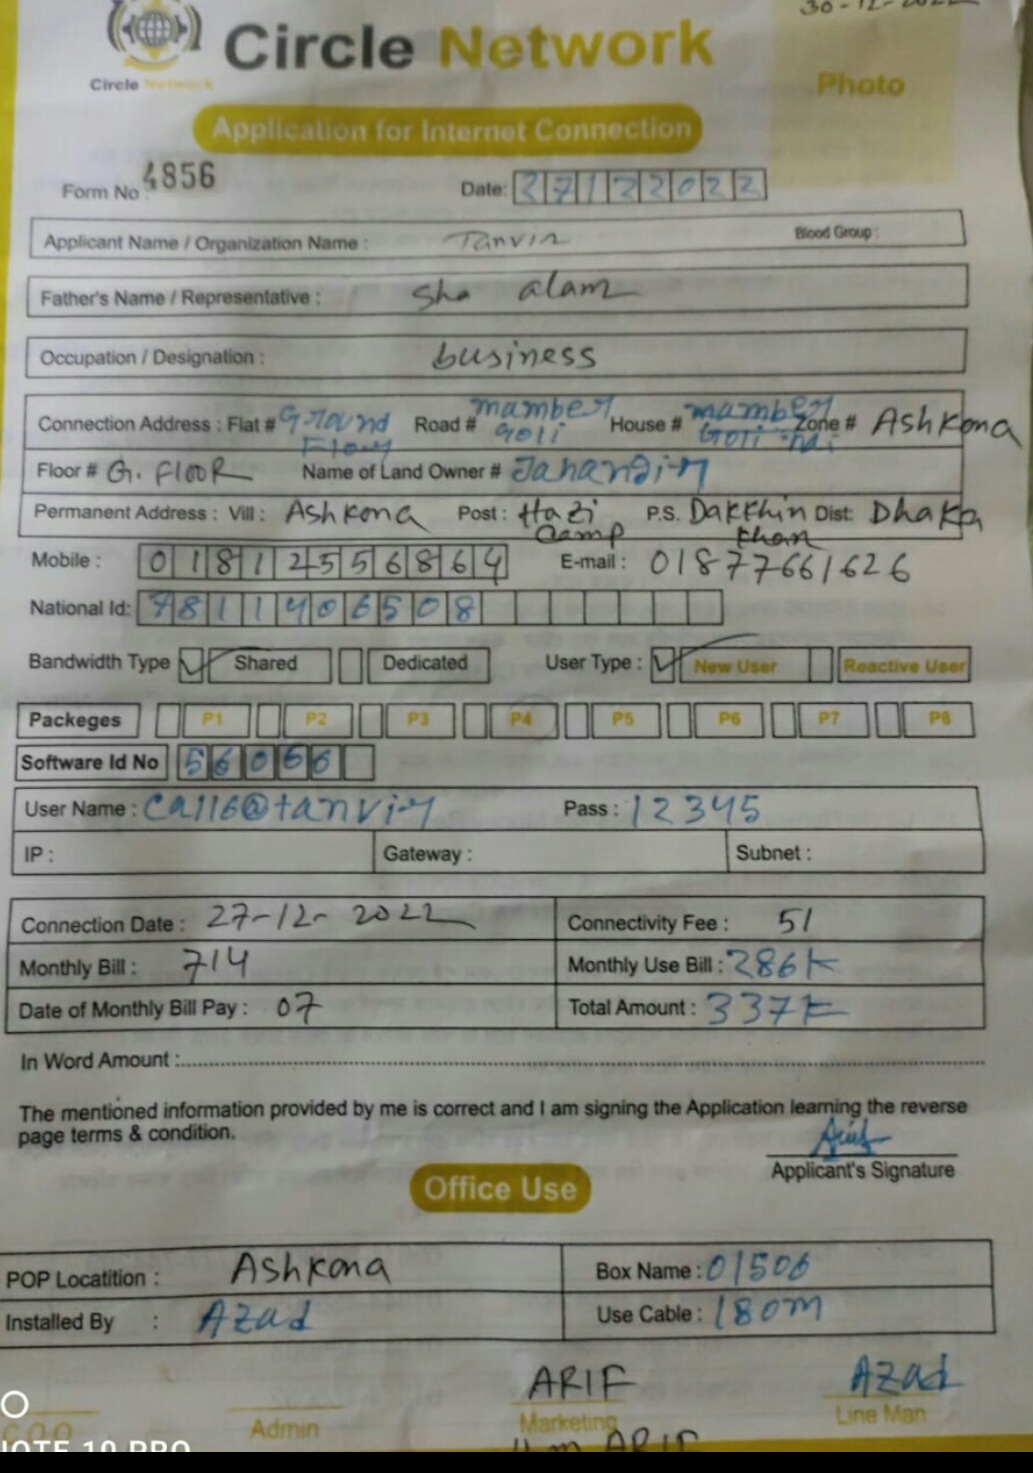 30-12-2022
Circle Network
Circle Network
Photo
Application for Internet Connection
Form No. 4856
Date: 27122022
Applicant Name / Organization Name : Tanvir Blood Group :
Father's Name / Representative : Sha alam
Occupation / Designation : business
Connection Address : Flat # Ground Floor Road # mamber Goli House # mamber Goli Zone # Ashkona
Floor # G. FlooR Name of Land Owner # Jahangir
Permanent Address : Vill : Ashkona Post : Hazi Camp P.S. Dakkhin khan Dist: Dhaka
Mobile : 01812556864 E-mail : 01877661626
National Id: 7811406508
Bandwidth Type Shared Dedicated User Type : New User Reactive User
Packeges P1 P2 P3 P4 P5 P6 P7 P8
Software Id No 56066
User Name : Ca116@tanvir Pass : 12345
IP : Gateway : Subnet :
Connection Date : 27-12-2022 Connectivity Fee : 51
Monthly Bill : 714 Monthly Use Bill : 286
Date of Monthly Bill Pay : 07 Total Amount : 337
In Word Amount :
The mentioned information provided by me is correct and I am signing the Application learning the reverse
page terms & condition.
Arif
Applicant's Signature
Office Use
POP Locatition : Ashkona Box Name : 01506
Installed By : Azad Use Cable : 180m
ARIF Azad
COO Admin Marketing Line Man
ARIF
NOTE 10 PRO